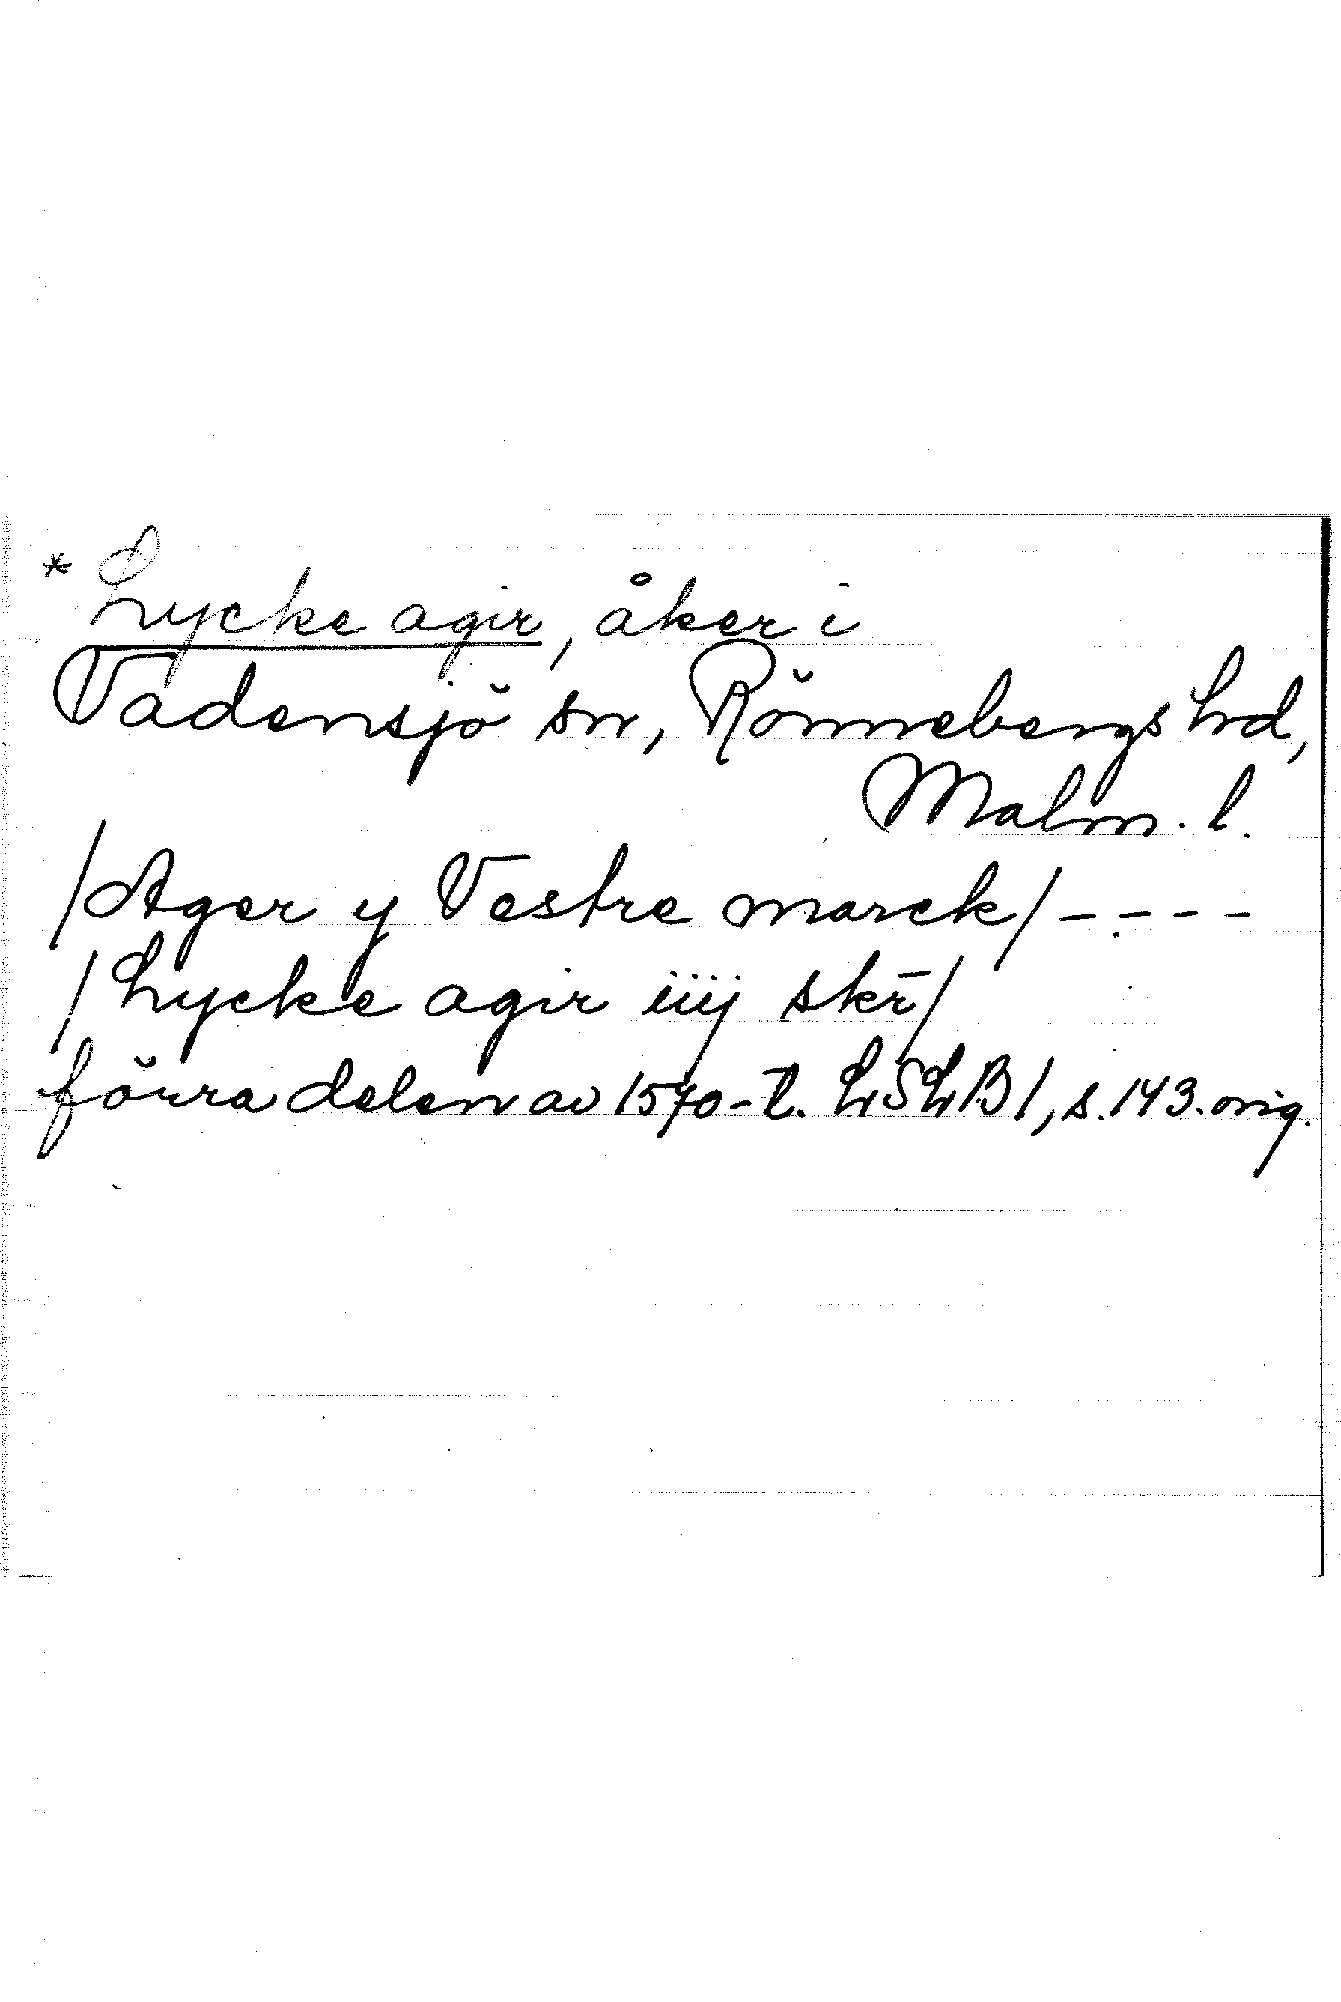 * Lycke agir, åker i
Vadensjö sn, Rönnebergs hd,
Malm. l.
/Ager y Vestre marck/ - - - -
/Lycke agir iiij skr̄/
förra delen av 1570-t. LSLB 1, s. 143. orig.